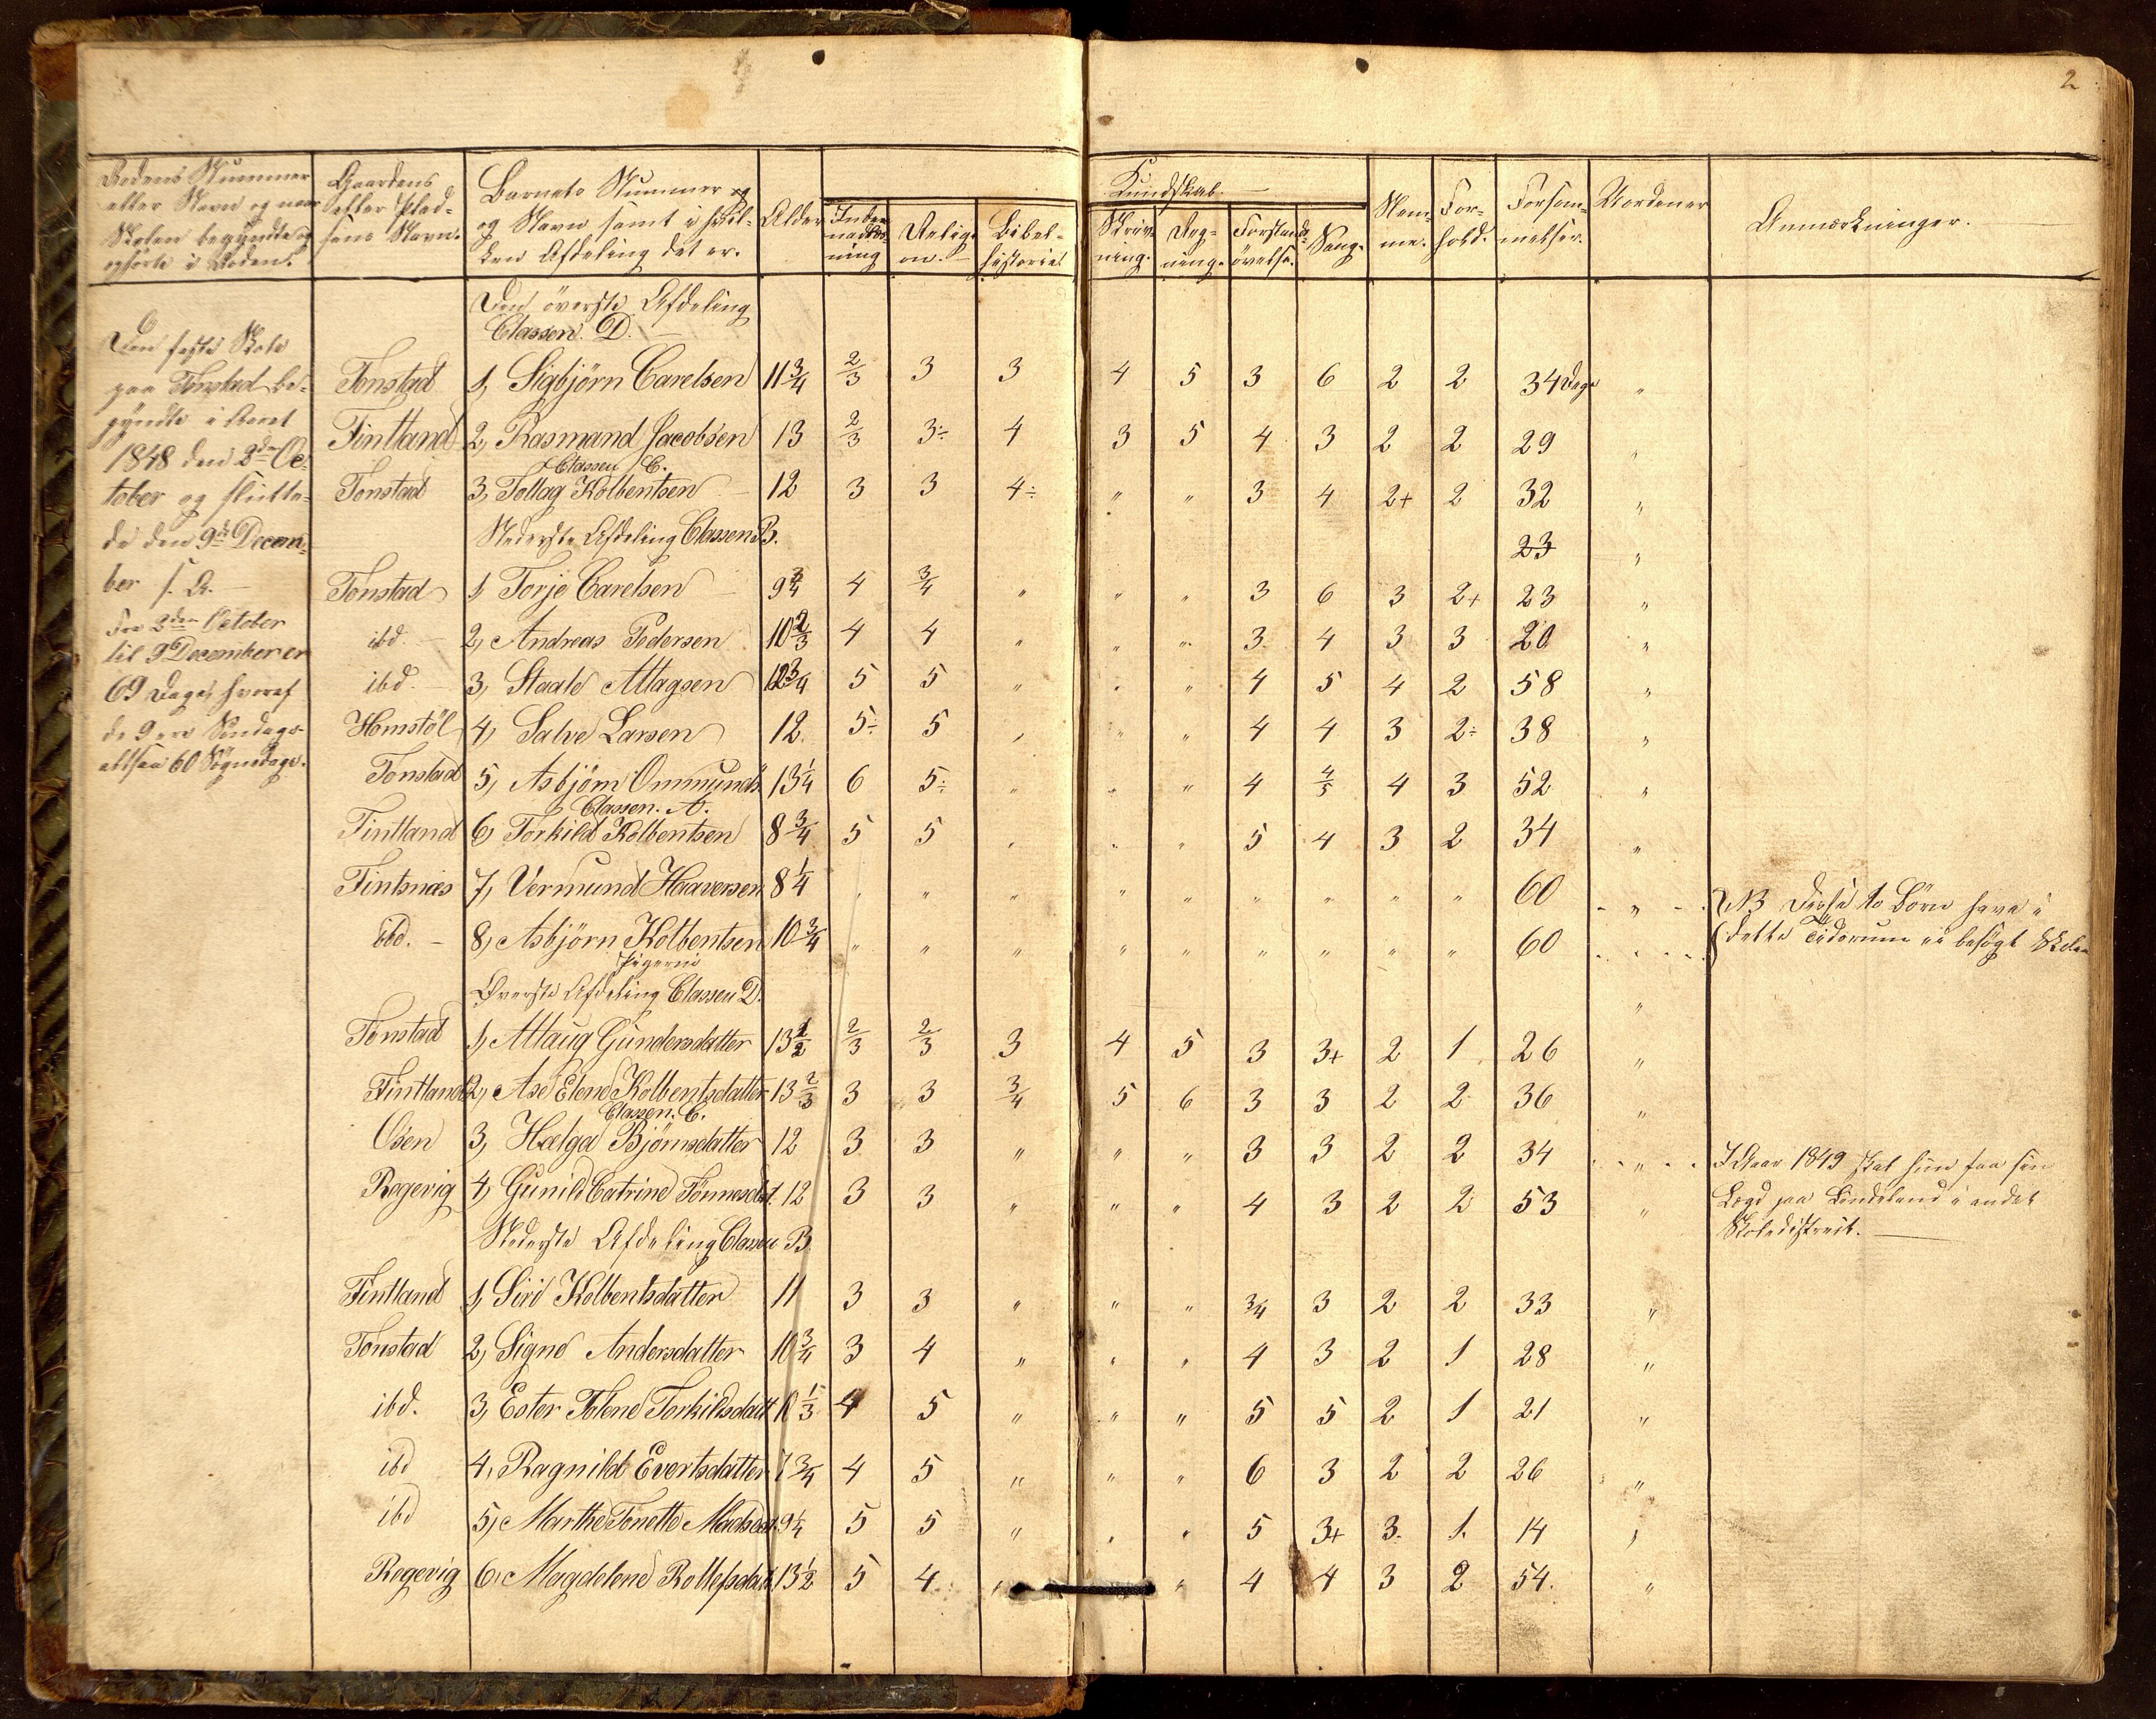 2
Rodens Nummer
eller Navn og naar
Skolen begyndte og
ophörte i Roden.
Gaardens
eller Plad-
sens Navn.
Barnets Nummer og
og Navn samt i hvil-
ken Afdeling det er.
Alder
Kundskab.
Inden-
ning
Religi-
on.
Bibel-
historie
Skriv-
ning.
Reg-
ning.
Forstands-
övelse.
Sang.
Nem-
me.
For-
hold.
Forsöm-
melser.
Uordener
Anmærkninger.
Den förste Skole
paa Tonstad be-
gyndte i Aaret
1848 den 2den Oc-
tober og slutte-
de den 9de Decem-
ber s. A.
Fra 2den October
til 9 December er
69 Dage, hvoraf
de 9 ere Söndage
altsaa 60 Sögnedage.
Den överste Afdeling
Classen. D.
Tonstad 1, Sigbjörn Carelsen 11 3/4 2/3 3 3 4 5 3 6 2 2 34 Dage "
Fintland 2, Rasmand Jacobsen 13 2/3 3÷ 4 3 5 4 3 2 2 29 "
Classen C.
Tonstad 3, Tollag Kolbentsen 12 3 3 4÷ " " 3 4 2+ 2 32 "
Nederste Afdeling Classen B.
23 "
Tonstad 1, Torje Carelsen 9 3/4 4 3/4 " " " 3 6 3 2+ 23 "
ibd. 2, Andreas Pedersen 10 2/3 4 4 " " " 3 4 3 3 20 "
ibd. 3, Staale Atlagsen 12 3/4 5 5 " " " 4 5 4 2 58 "
Homstöl 4, Salve Larsen 12 5÷ 5 " " " 4 4 3 2÷ 38 "
Tonstad 5, Asbjörn Ommunds. 13 1/4 6 5÷ " " " 4 4/5 4 3 52 "
Classen. A.
Fintland 6, Torkild Kolbentsen 8 3/4 5 5 " " " 5 4 3 2 34 "
Fintsnæs 7, Vermund Haaversen 8 1/4 " " " " " " " " " 60 " NB Disse to Börn have i
ibd. 8, Asbjörn Kolbentsen 10 3/4 " " " " " " " " " 60 " dette Tidsrum ei besögt Skolen
Pigerne
Överste Afdeling Classen D. "
Tonstad 1, Atlaug Gundersdatter 13 1/2 2/3 2/3 3 4 5 3 3+ 2 1 26 "
Fintland 2, Ase Elene Kolbentsdatter 13 2/3 3 3 3/4 5 6 3 3 2 2 36 "
Classen. C.
Osen 3, Helga Björnsdatter 12 3 3 " " " 3 3 2 2 34 " I Aar 1849 skal hun faa sin
Rogevig 4, Gunild Catrine Tönnesdat. 12 3 3 " " " 4 3 2 2 53 " Lægd paa Lindeland i andet
Skoledistrict.
Nederste Afdeling Classen B
Fintland 1, Siri Kolbentsdatter 11 3 3 " " " 3/4 3 2 2 33 "
Tonstad 2, Signe Andersdatter 10 3/4 3 4 " " " 4 3 2 1 28 "
ibd. 3, Ester Tolene Torkildsdatt 10 1/3 4 5 " " " 5 5 2 1 21 "
ibd 4, Ragnild Evertsdatter 7 3/4 4 5 " " " 6 3 2 2 26 "
ibd 5, Marthe Tonette Madsdat. 9 1/4 5 5 " " " 5 3+ 3. 1. 14 "
Rogevig 6, Magdelene Rollefsdatt. 13 1/2 5 4 " " 4 4 3 2 54. "